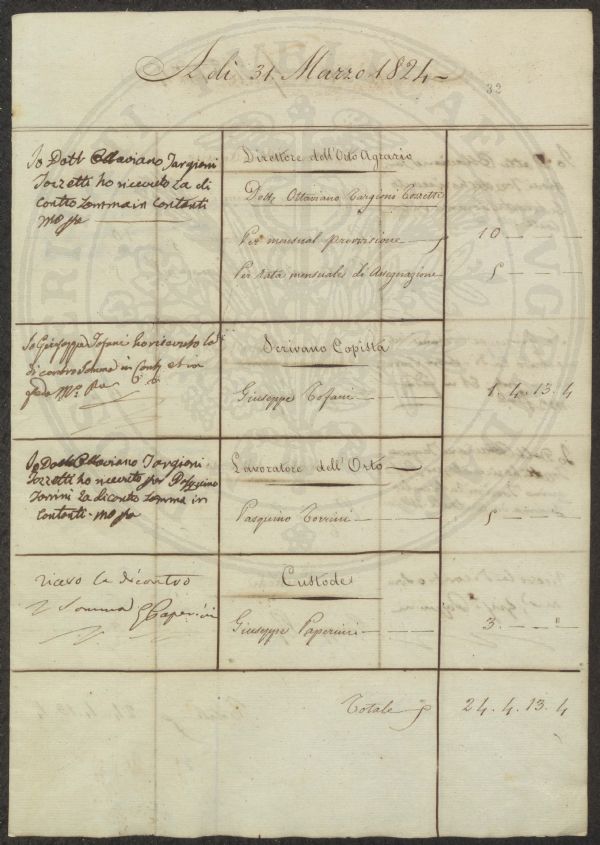 A dì 31. Marzo 1824
32
Io Dott Ottaviano Targioni
Tozzetti ho ricevuto la di
contro somma in contanti
mo pa
Direttore dell'Orto Agrario
Dott. Ottaviano Targioni Tozzetti
Per mensual provvisione 10
Per rata mensuale di Assegnazione 5
Io Giuseppe Tofani ho ricevuto la
di contro somma in Conti ed in
fede Mo. pa
Scrivano Copista
Giuseppe Tofani 1. 4. 13. 4
Io Dott Ottaviano Targioni
Tozzetti ho ricevuto per Pasquino
Torrini la di contro somma in
contanti mo pa
Lavoratore dell'Orto
Pasquino Torrini 5
ricevo la dicontro
Somma G Paperini
Custode
Giuseppe Paperini 3. "
Totale 24. 4. 13. 4